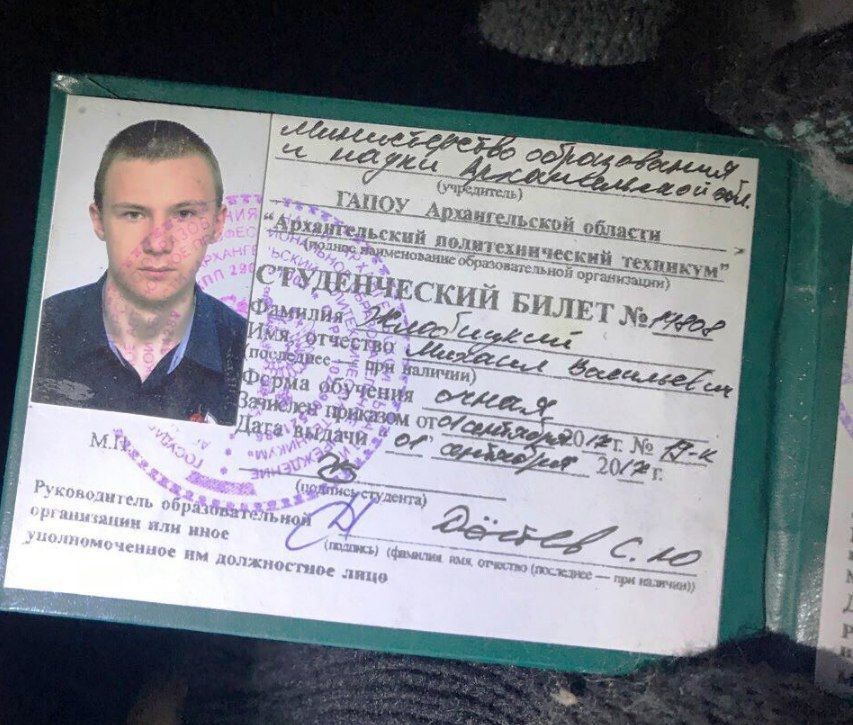 Министерство образования
и науки Архангельской обл.
(учредитель)
ГАПОУ Архангельской области
"Архангельский политехнический техникум"
(полное наименование образовательной организации)
СТУДЕНЧЕСКИЙ БИЛЕТ № 17808
Фамилия Жлобицкий
Имя, отчество Михаил Васильевич
(последнее — при наличии)
Форма обучения очная
Зачислен приказом от 01 сентября 2017 г. № 17-к
Дата выдачи "01" сентября 2017 г.
(подпись студента)
М.П.
Руководитель образовательной
организации или иное
уполномоченное им должностное лицо
С. Ю
(подпись) (фамилия, имя, отчество (последнее — при наличии))